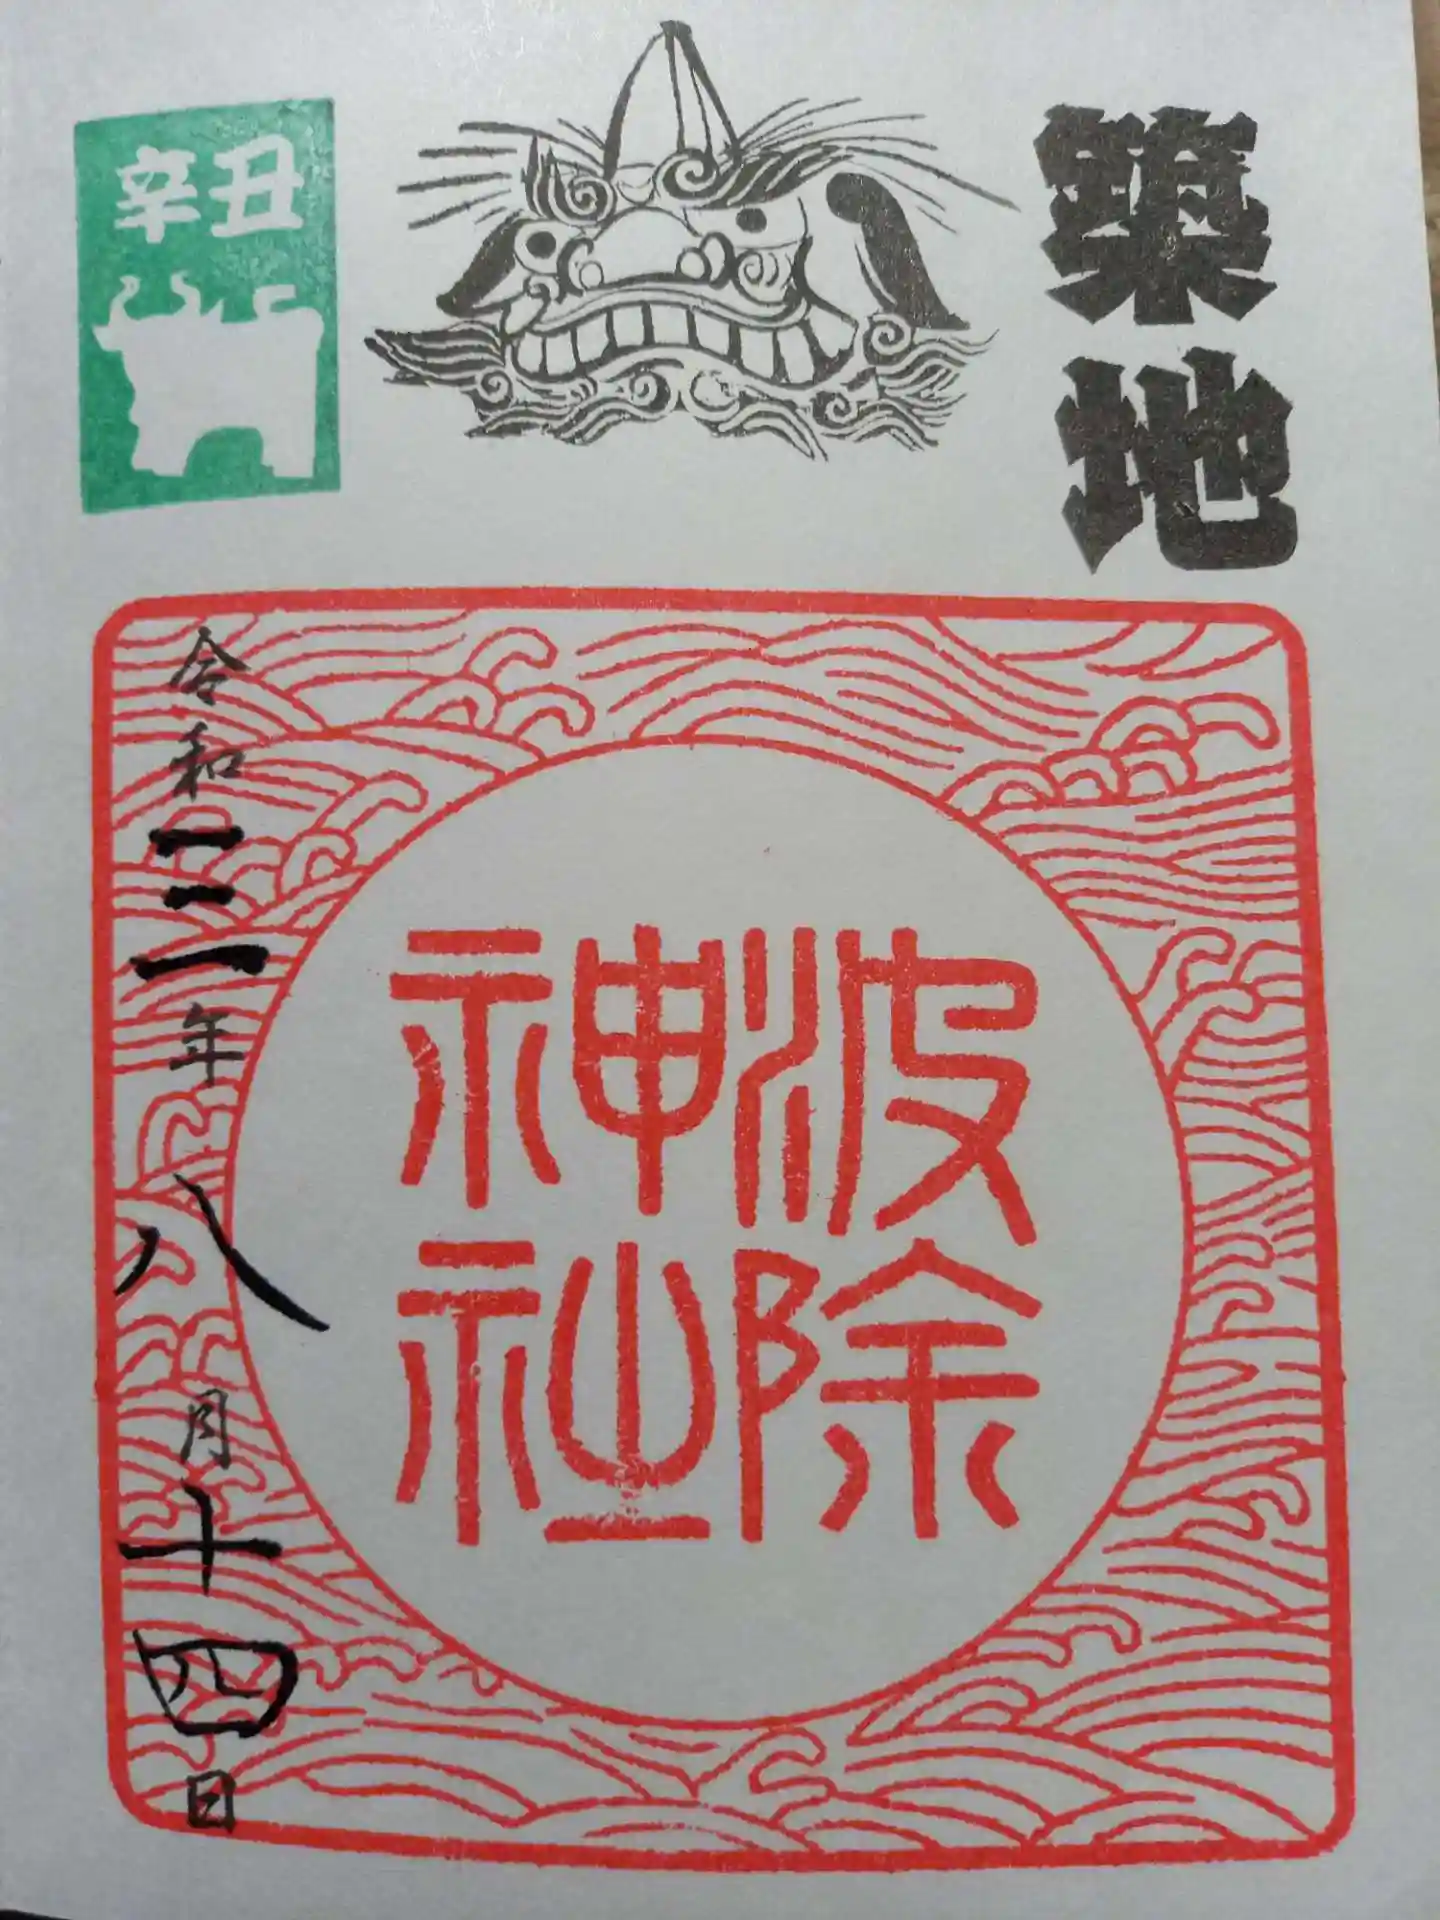 築地
辛丑
波除
神社
令和三年八月十四日